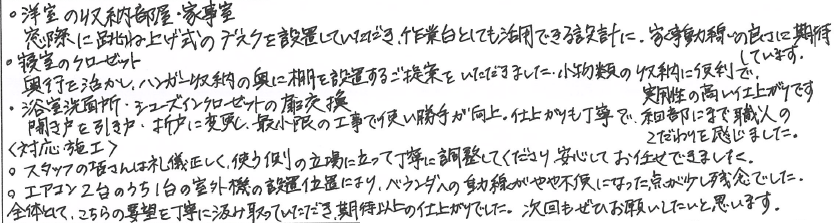 ○洋室の収納部屋・家事室
窓際に跳ね上げ式のデスクを設置していただき、作業台としても活用できる設計に。家事動線の良さに期待しています。
・寝室のクローゼット
奥行を活かし、ハンガー収納の奥に棚を設置するご提案をいただきました。小物類の収納に便利で、実用性の高い仕上がりです
・浴室洗面所・シューズインクローゼットの扉交換
開き戸を引き戸・折戸に変更し、最小限の工事で使い勝手が向上。仕上がりも丁寧で、細部にまで職人のこだわりを感じました。
〈対応・施工〉
○スタッフの皆さんは礼儀正しく、使う側の立場に立って丁寧に調整してくださり、安心してお任せできました。
○エアコン2台のうち1台の室外機の設置位置により、ベランダへの動線がやや不便になった点が少し残念でした。
全体として、こちらの要望を丁寧に汲み取っていただき、期待以上の仕上がりでした。次回もぜひお願いしたいと思います。